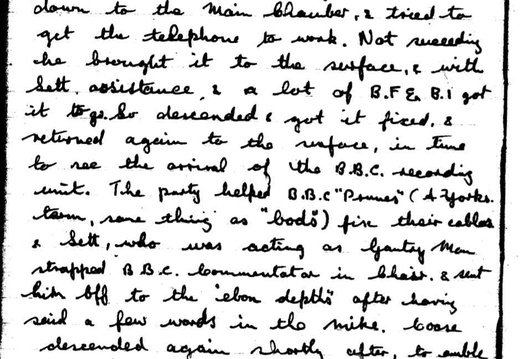 down to the Main Chamber, & tried to
get the telephone to work. Not succeeding
he brought it to the surface, & with
Sett. assistance, & a lot of B.F & B.I got
it to go. So descended & got it fixed, &
returned again to the surface, in time
to see the arrival of the B.B.C. recording
unit. The party helped B.B.C "Prunes" (A Yorks.
term, same thing as "bods") fix their cables
& Sett, who was acting as Gantry Man
strapped B.B.C. Commentator in Chair. & sent
him off to the "ebon depths" after having
said a few words in the mike.
descended again shortly after, to enable